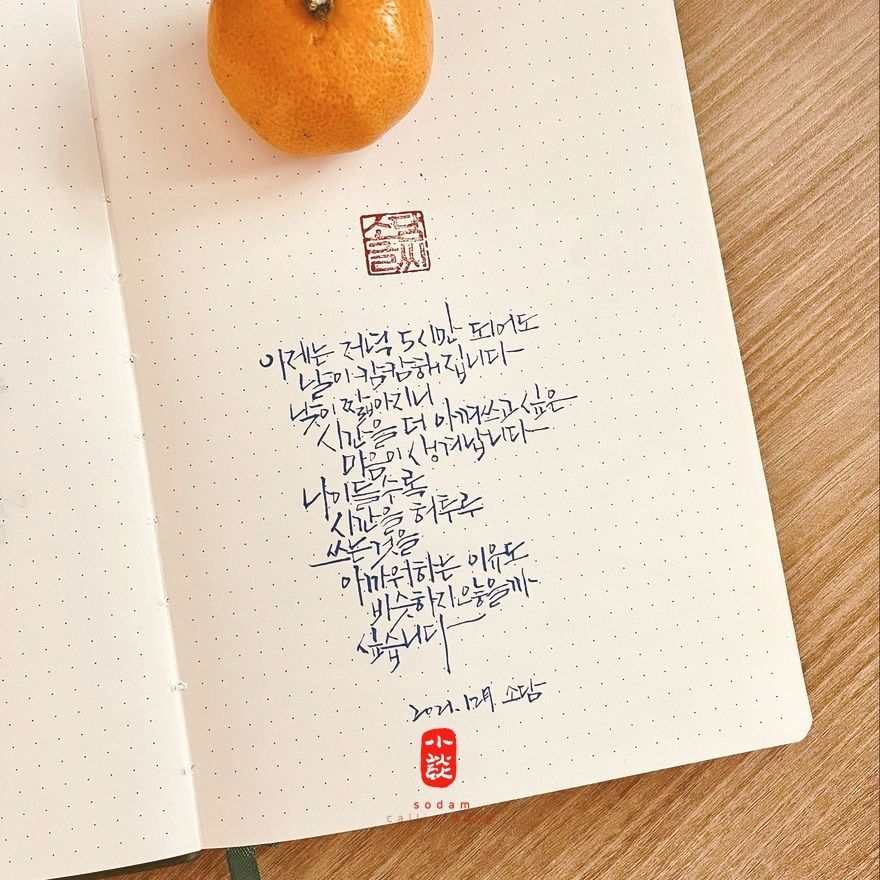 소담
글씨
이제는 저녁 5시만 되어도
날이 캄캄해집니다
낮이 짧아지니
시간을 더 아껴쓰고 싶은
마음이 생겨납니다
나이들수록
시간을 허투루
쓰는것을
아까워하는 이유도
비슷하지않을까
싶습니다
2021.12월 소담
小
談
sodam
calligraphy